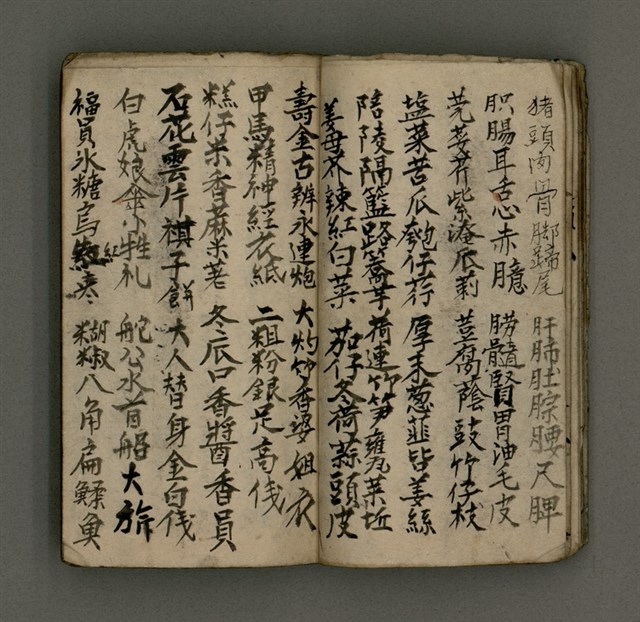 猪頭肉骨脚蹄尾 肝肺肚腙腰尺脾
胑腸耳舌心赤臆 髈髓腎胃油毛皮
芫荽芥紫淹瓜莿 荳腐蔭豉竹仔枝
塩菜苦瓜匏仔荇 厚末葱韮皆姜絲
陪陵隔籃路蒿芋 荷連竹笋雍
姜母芥辣紅白菜 茄仔冬荷蒜頭皮
壽金古辦永連炮 大灼竹香婆姐衣
甲馬精神經衣紙 二粗粉銀足高伐
糕仔米香蔴米荖 冬瓜口香醬香員
石花雲片棋子餅 大人替身金白伐
白虎娘傘小牲礼 舵公水首船大
福員氷糖烏紅棗 糊椒八角扁鰇魚